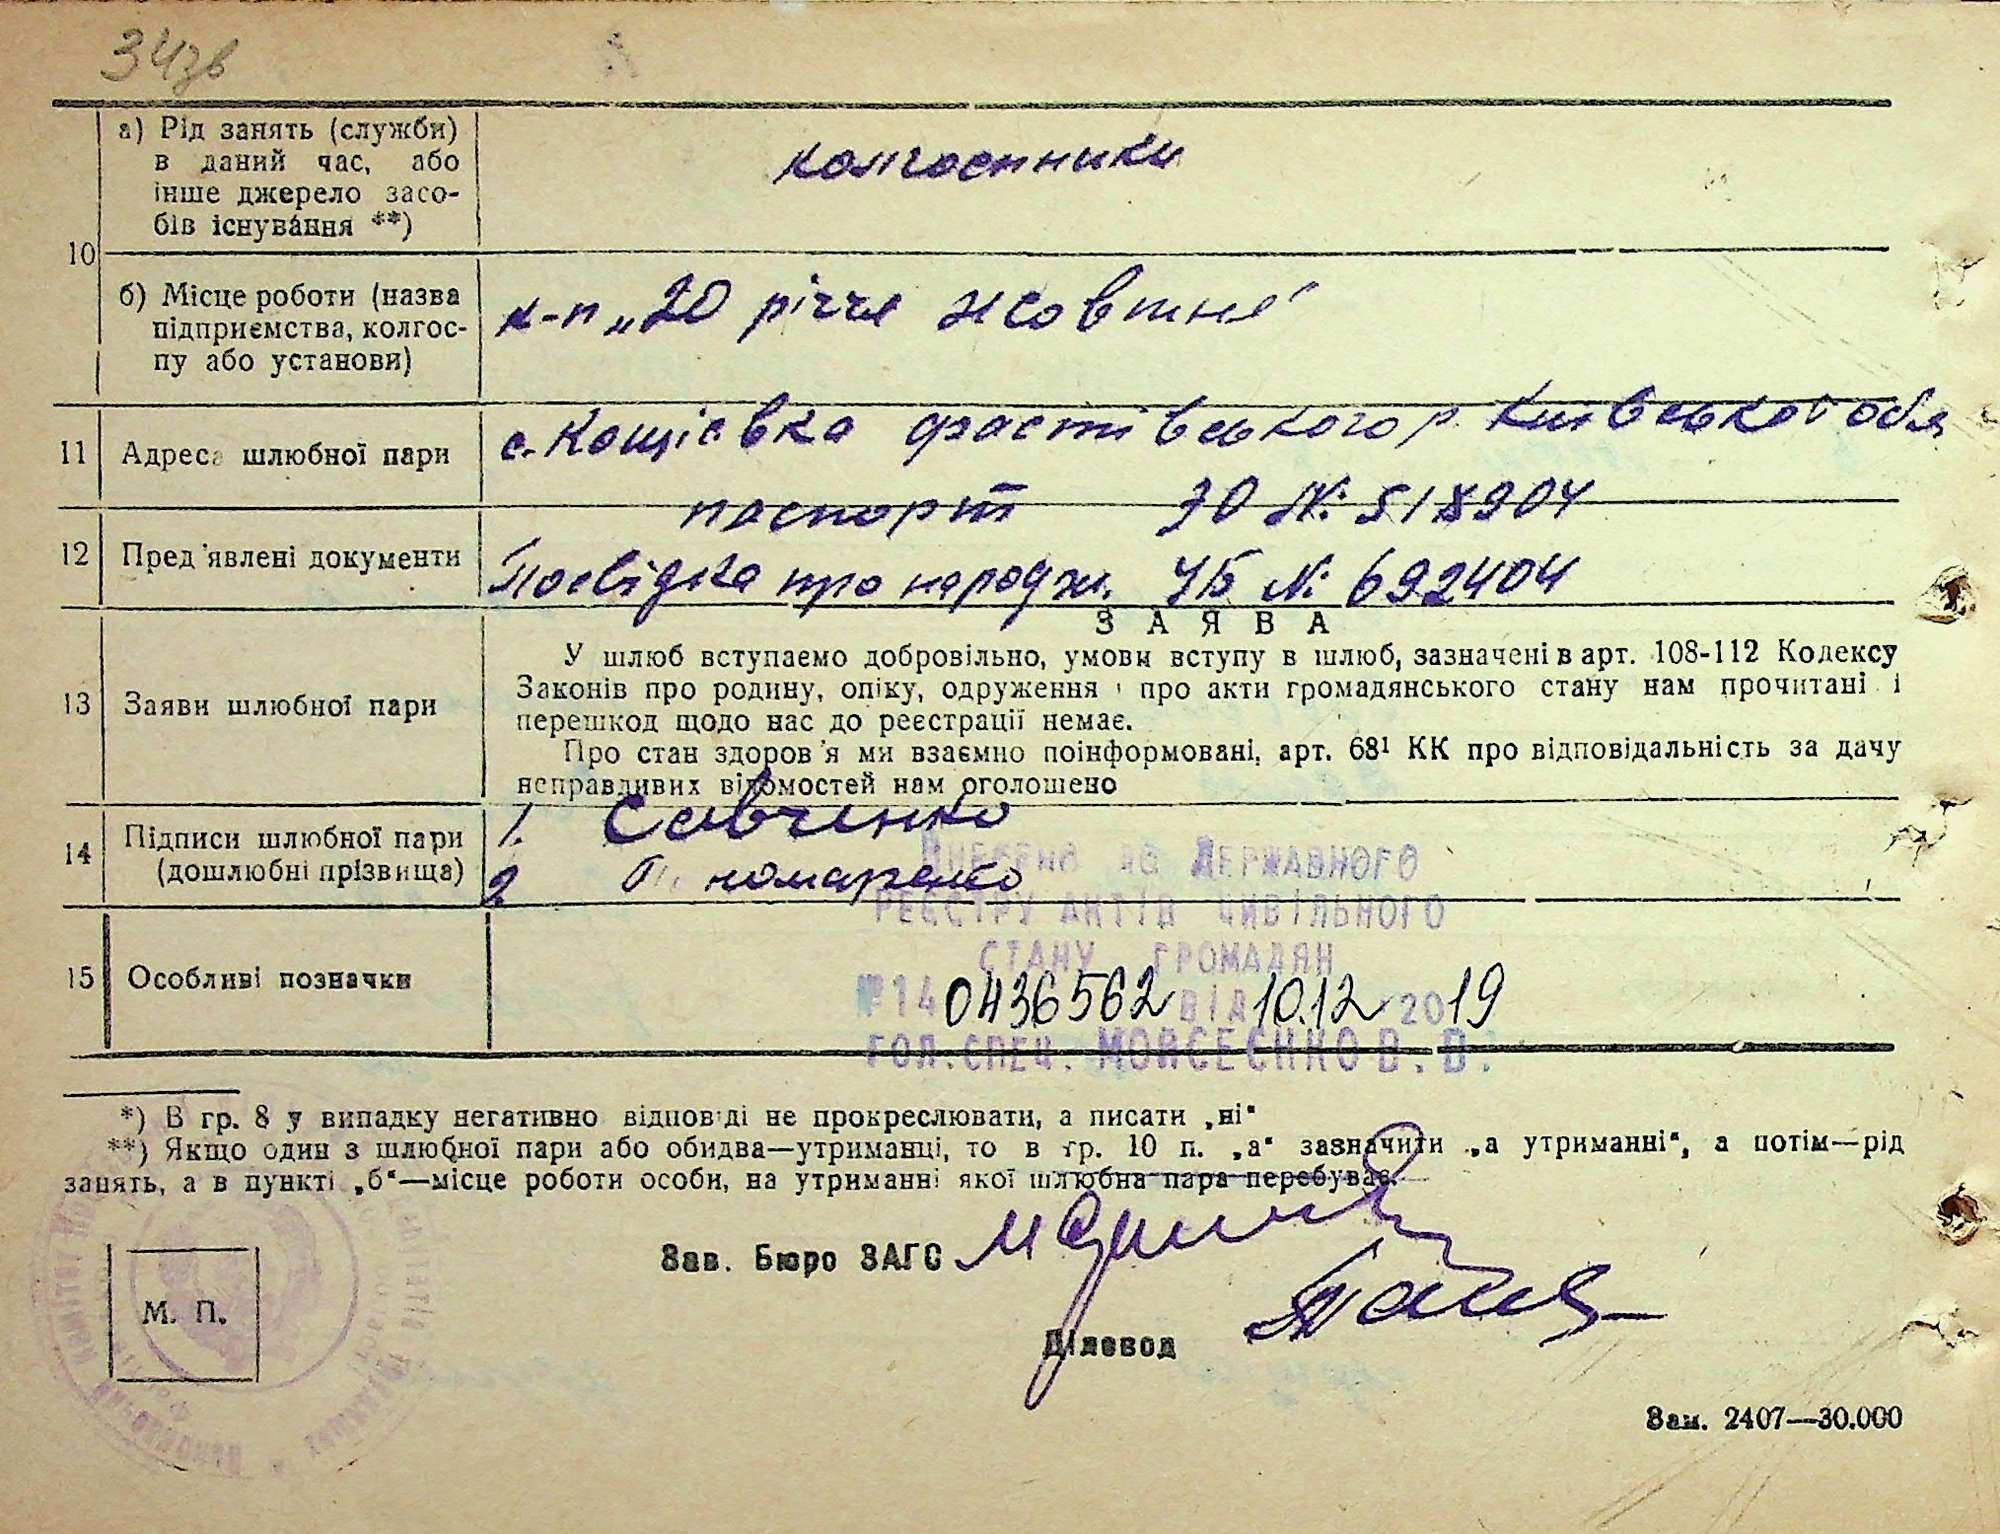 34зв
10
а) Рід занять (служби)
в даний час, або
інше джерело засо-
бів існування **)
колгоспники
б) Місце роботи (назва
підприємства, колгос-
пу або установи)
к-п „20 річчя Жовтня"
11
Адреса шлюбної пари
с. Кощіевка Фастівського р. Київської обл
12
Пред'явлені документи
паспорт № 518904
Посвідка про народж. № 692404
13
Заяви шлюбної пари
ЗАЯВА
У шлюб вступаємо добровільно, умови вступу в шлюб, зазначені в арт. 108-112 Кодексу
Законів про родину, опіку, одруження і про акти громадянського стану нам прочитані і
перешкод щодо нас до реєстрації немає.
Про стан здоров'я ми взаємно поінформовані, арт. 68¹ КК про відповідальність за дачу
неправдивих відомостей нам оголошено
14
Підписи шлюбної пари
(дошлюбні прізвища)
1. Савченко
2 Пономаренко
15
Особливі позначки
Внесено до Державного
реєстру актів цивільного
стану громадян
№ 140436562 від 10.12 2019
гол. спец. Мойсеєнко В. В.
*) В гр. 8 у випадку негативно відповіді не прокреслювати, а писати „ні"
**) Якщо один з шлюбної пари або обидва—утриманці, то в гр. 10 п. „а" зазначити „а утриманні", а потім—рід
занять, а в пункті „б"—місце роботи особи, на утриманні якої шлюбна пара перебуває.
Зав. Бюро ЗАГС
М. П.
Діловод
Зам. 2407—30.000